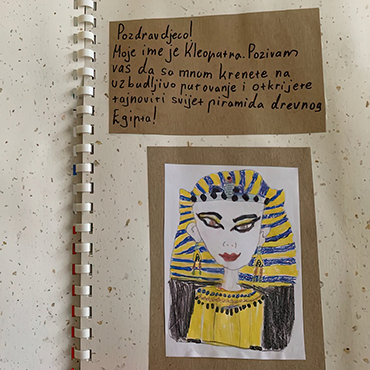 Pozdrav djeco!
Moje ime je Kleopatra. Pozivam
vas da sa mnom krenete na
uzbudljivo putovanje i otkrijete
tajnoviti svijet piramida drevnog
Egipta!